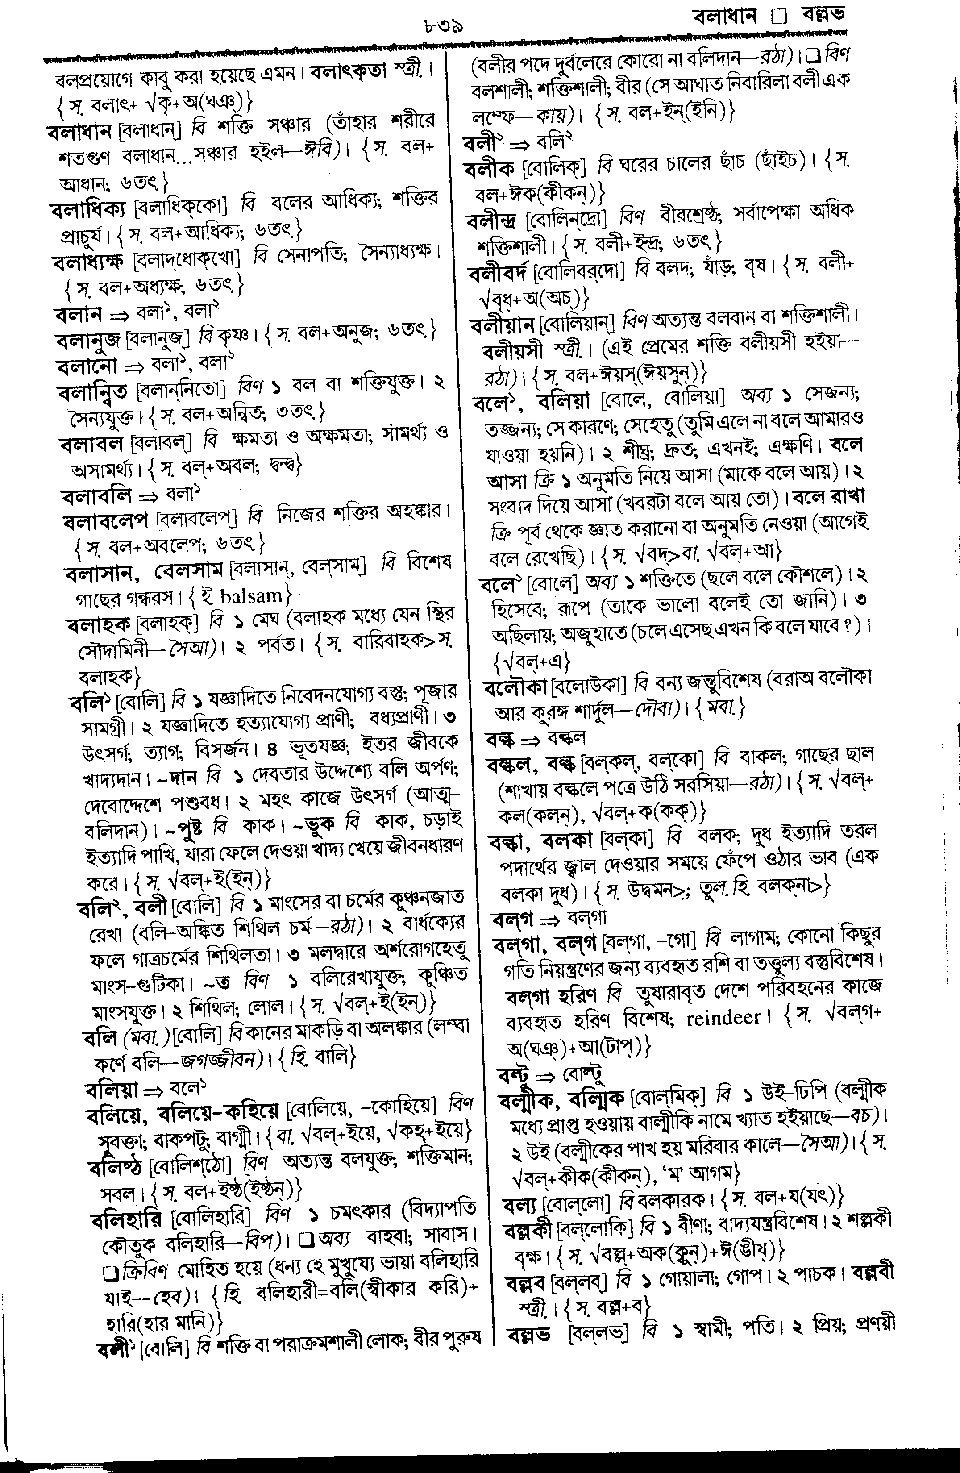 ৮৩৯
বলাধান □ বল্লভ
বলপ্রয়োগে কাবু করা হয়েছে এমন। বলাৎকৃতা স্ত্রী.।
{স. বলাৎ+ √কৃ+অ(ঘঞ্)}
বলাধান [বলাধান্] বি শক্তি সঞ্চার (তাঁহার শরীরে
শতগুণ বলাধান...সঞ্চার হইল—ঈবি)। {স. বল+
আধান; ৬তৎ}
বলাধিক্য [বলাধিক্‌কো] বি বলের আধিক্য; শক্তির
প্রাচুর্য। {স. বল+আধিক্য; ৬তৎ}
বলাধ্যক্ষ [বলাদ্‌ধোক্‌খো] বি সেনাপতি; সৈন্যাধ্যক্ষ।
{স. বল+অধ্যক্ষ; ৬তৎ}
বলান ⇒ বলা১, বলা২
বলানুজ [বলানুজ্] বি কৃষ্ণ। {স. বল+অনুজ; ৬তৎ}
বলানো ⇒ বলা১, বলা২
বলান্বিত [বলান্‌নিতো] বিণ ১ বল বা শক্তিযুক্ত। ২
সৈন্যযুক্ত। {স. বল+অন্বিত; ৩তৎ}
বলাবল [বলাবল্] বি ক্ষমতা ও অক্ষমতা; সামর্থ্য ও
অসামর্থ্য। {স. বল্+অবল; দ্বন্দ্ব}
বলাবলি ⇒ বলা১
বলাবলেপ [বলাবলেপ্] বি নিজের শক্তির অহঙ্কার।
{স. বল+অবলেপ; ৬তৎ}
বলাসান, বেলসাম [বলাসান্, বেল্‌সাম্] বি বিশেষ
গাছের গন্ধরস। {ই balsam}
বলাহক [বলাহক্] বি ১ মেঘ (বলাহক মধ্যে যেন স্থির
সৌদামিনী—সৈআ)। ২ পর্বত। {স. বারিবাহক>স.
বলাহক}
বলি১ [বোলি] বি ১ যজ্ঞাদিতে নিবেদনযোগ্য বস্তু; পূজার
সামগ্রী। ২ যজ্ঞাদিতে হত্যাযোগ্য প্রাণী; বধ্যপ্রাণী। ৩
উৎসর্গ, ত্যাগ; বিসর্জন। ৪ ভূতযজ্ঞ; ইতর জীবকে
খাদ্যদান। ~দান বি ১ দেবতার উদ্দেশ্যে বলি অর্পণ;
দেবোদ্দেশে পশুবধ। ২ মহৎ কাজে উৎসর্গ (আত্ম—
বলিদান)। ~পুষ্ট বি কাক। ~ভূক বি কাক, চড়াই
ইত্যাদি পাখি, যারা ফেলে দেওয়া খাদ্য খেয়ে জীবনধারণ
করে। {স. √বল্+ই(ইন্)}
বলি২, বলী [বোলি] বি ১ মাংসের বা চর্মের কুঞ্চনজাত
রেখা (বলি-অঙ্কিত শিথিল চর্ম—রঠা)। ২ বার্ধক্যের
ফলে গাত্রচর্মের শিথিলতা। ৩ মলদ্বারে অর্শরোগহেতু
মাংস-গুটিকা। ~ত বিণ ১ বলিরেখাযুক্ত; কুঞ্চিত
মাংসযুক্ত। ২ শিথিল; লোল। {স. √বল্+ই(ইন্)}
বলি (মবা.) [বোলি] বি কানের মাকড়ি বা অলঙ্কার (লম্বা
কর্ণে বলি—জগজ্জীবন)। {হি. বালি}
বলিয়া ⇒ বলে১
বলিয়ে, বলিয়ে-কহিয়ে [বোলিয়ে, -কোহিয়ে] বিণ
সুবক্তা; বাকপটু; বাগ্মী। {বা. √বল্+ইয়ে, √কহ্+ইয়ে}
বলিষ্ঠ [বোলিশ্‌ঠো] বিণ অত্যন্ত বলযুক্ত; শক্তিমান;
সবল। {স. বল+ইষ্ঠ(ইষ্ঠন্)}
বলিহারি [বোলিহারি] বিণ ১ চমৎকার (বিদ্যাপতি
কৌতুক বলিহারি—বিপ)। □ অব্য বাহবা; সাবাস।
□ ক্রিবিণ মোহিত হয়ে (ধন্য হে মুখুয্যে ভায়া বলিহারি
যাই—হেব)। {হি. বলিহারী=বলি(স্বীকার করি)+
হারি(হার মানি)}
বলী১ [বোলি] বি শক্তি বা পরাক্রমশালী লোক; বীর পুরুষ
(বলীর পদে দুর্বলেরে কোরো না বলিদান—রঠা)। □ বিণ
বলশালী; শক্তিশালী; বীর (সে আঘাত নিবারিলা বলী এক
লম্ফে—কায়)। {স. বল+ইন্(ইনি)}
বলী২ ⇒ বলি২
বলীক [বোলিক্] বি ঘরের চালের ছাঁচ (ছাঁইচ)। {স.
বল+ঈক(কীকন্)}
বলীন্দ্র [বোলিন্‌দ্রো] বিণ বীরশ্রেষ্ঠ; সর্বাপেক্ষা অধিক
শক্তিশালী। {স. বলী+ইন্দ্র; ৬তৎ}
বলীবর্দ [বোলিবর্‌দো] বি বলদ; ষাঁড়; বৃষ। {স. বলী+
√বৃধ্+অ(অচ্)}
বলীয়ান [বোলিয়ান্] বিণ অত্যন্ত বলবান বা শক্তিশালী।
বলীয়সী স্ত্রী.। (এই প্রেমের শক্তি বলীয়সী হইয়া—
রঠা)। {স. বল+ঈয়স্(ঈয়সুন্)}
বলে১, বলিয়া [বোলে, বোলিয়া] অব্য ১ সেজন্য;
তজ্জন্য; সে কারণে; সেহেতু (তুমি এলে না বলে আমারও
যাওয়া হয়নি)। ২ শীঘ্র; দ্রুত; এখনই; এক্ষণি। বলে
আসা ক্রি ১ অনুমতি নিয়ে আসা (মাকে বলে আয়)। ২
সংবাদ দিয়ে আসা (খবরটা বলে আয় তো)। বলে রাখা
ক্রি পূর্ব থেকে জ্ঞাত করানো বা অনুমতি নেওয়া (আগেই
বলে রেখেছি)। {স. √বদ্>বা. √বল্+আ}
বলে২ [বোলে] অব্য ১ শক্তিতে (ছলে বলে কৌশলে)। ২
হিসেবে; রূপে (তাকে ভালো বলেই তো জানি)। ৩
অছিলায়; অজুহাতে (চলে এসেছ এখন কি বলে যাবে?)।
{√বল্+এ}
বলৌকা [বলোউকা] বি বন্য জন্তুবিশেষ (বরাঅ বলৌকা
আর কুরঙ্গ শার্দুল—দৌবা)। {মবা.}
বল্ক ⇒ বল্কল
বল্কল, বল্ক [বল্‌কল্, বল্‌কো] বি বাকল; গাছের ছাল
(শাখায় বল্কলে পত্রে উঠি সরসিয়া—রঠা)। {স. √বল্+
কল(কলন্), √বল্+ক(কক্)}
বল্কা, বলকা [বল্‌কা] বি বলক; দুধ ইত্যাদি তরল
পদার্থের জ্বাল দেওয়ার সময়ে ফেঁপে ওঠার ভাব (এক
বলকা দুধ)। {স. উদ্বমন>; তুল. হি. বলকনা>}
বল্‌গ ⇒ বল্‌গা
বল্‌গা, বল্‌গ [বল্‌গা, -গো] বি লাগাম; কোনো কিছুর
গতি নিয়ন্ত্রণের জন্য ব্যবহৃত রশি বা তত্তুল্য বস্তুবিশেষ।
বল্‌গা হরিণ বি তুষারাবৃত দেশে পরিবহনের কাজে
ব্যবহৃত হরিণ বিশেষ; reindeer। {স. √বল্‌গ+
অ(ঘঞ্)+আ(টাপ্)}
বল্টু ⇒ বোল্টু
বল্মীক, বল্মিক [বোল্‌মিক্] বি ১ উই-ঢিপি (বল্মীক
মধ্যে প্রাপ্ত হওয়ায় বাল্মীকি নামে খ্যাত হইয়াছে—বচ)।
২ উই (বল্মীকের পাখ হয় মরিবার কালে—সৈআ)। {স.
√বল্+কীক(কীকন্), 'ম' আগম}
বল্য [বোল্‌লো] বি বলকারক। {স. বল+য(যৎ)}
বল্লকী [বল্‌লোকি] বি ১ বীণা; বাদ্যযন্ত্রবিশেষ। ২ শল্লকী
বৃক্ষ। {স. √বল্ল্+অক(ক্বুন্)+ঈ(ঙীষ্)}
বল্লব [বল্‌লব্] বি ১ গোয়ালা; গোপ। ২ পাচক। বল্লবী
স্ত্রী.। {স. বল্ল+ব}
বল্লভ [বল্‌লভ্] বি ১ স্বামী; পতি। ২ প্রিয়; প্রণয়ী